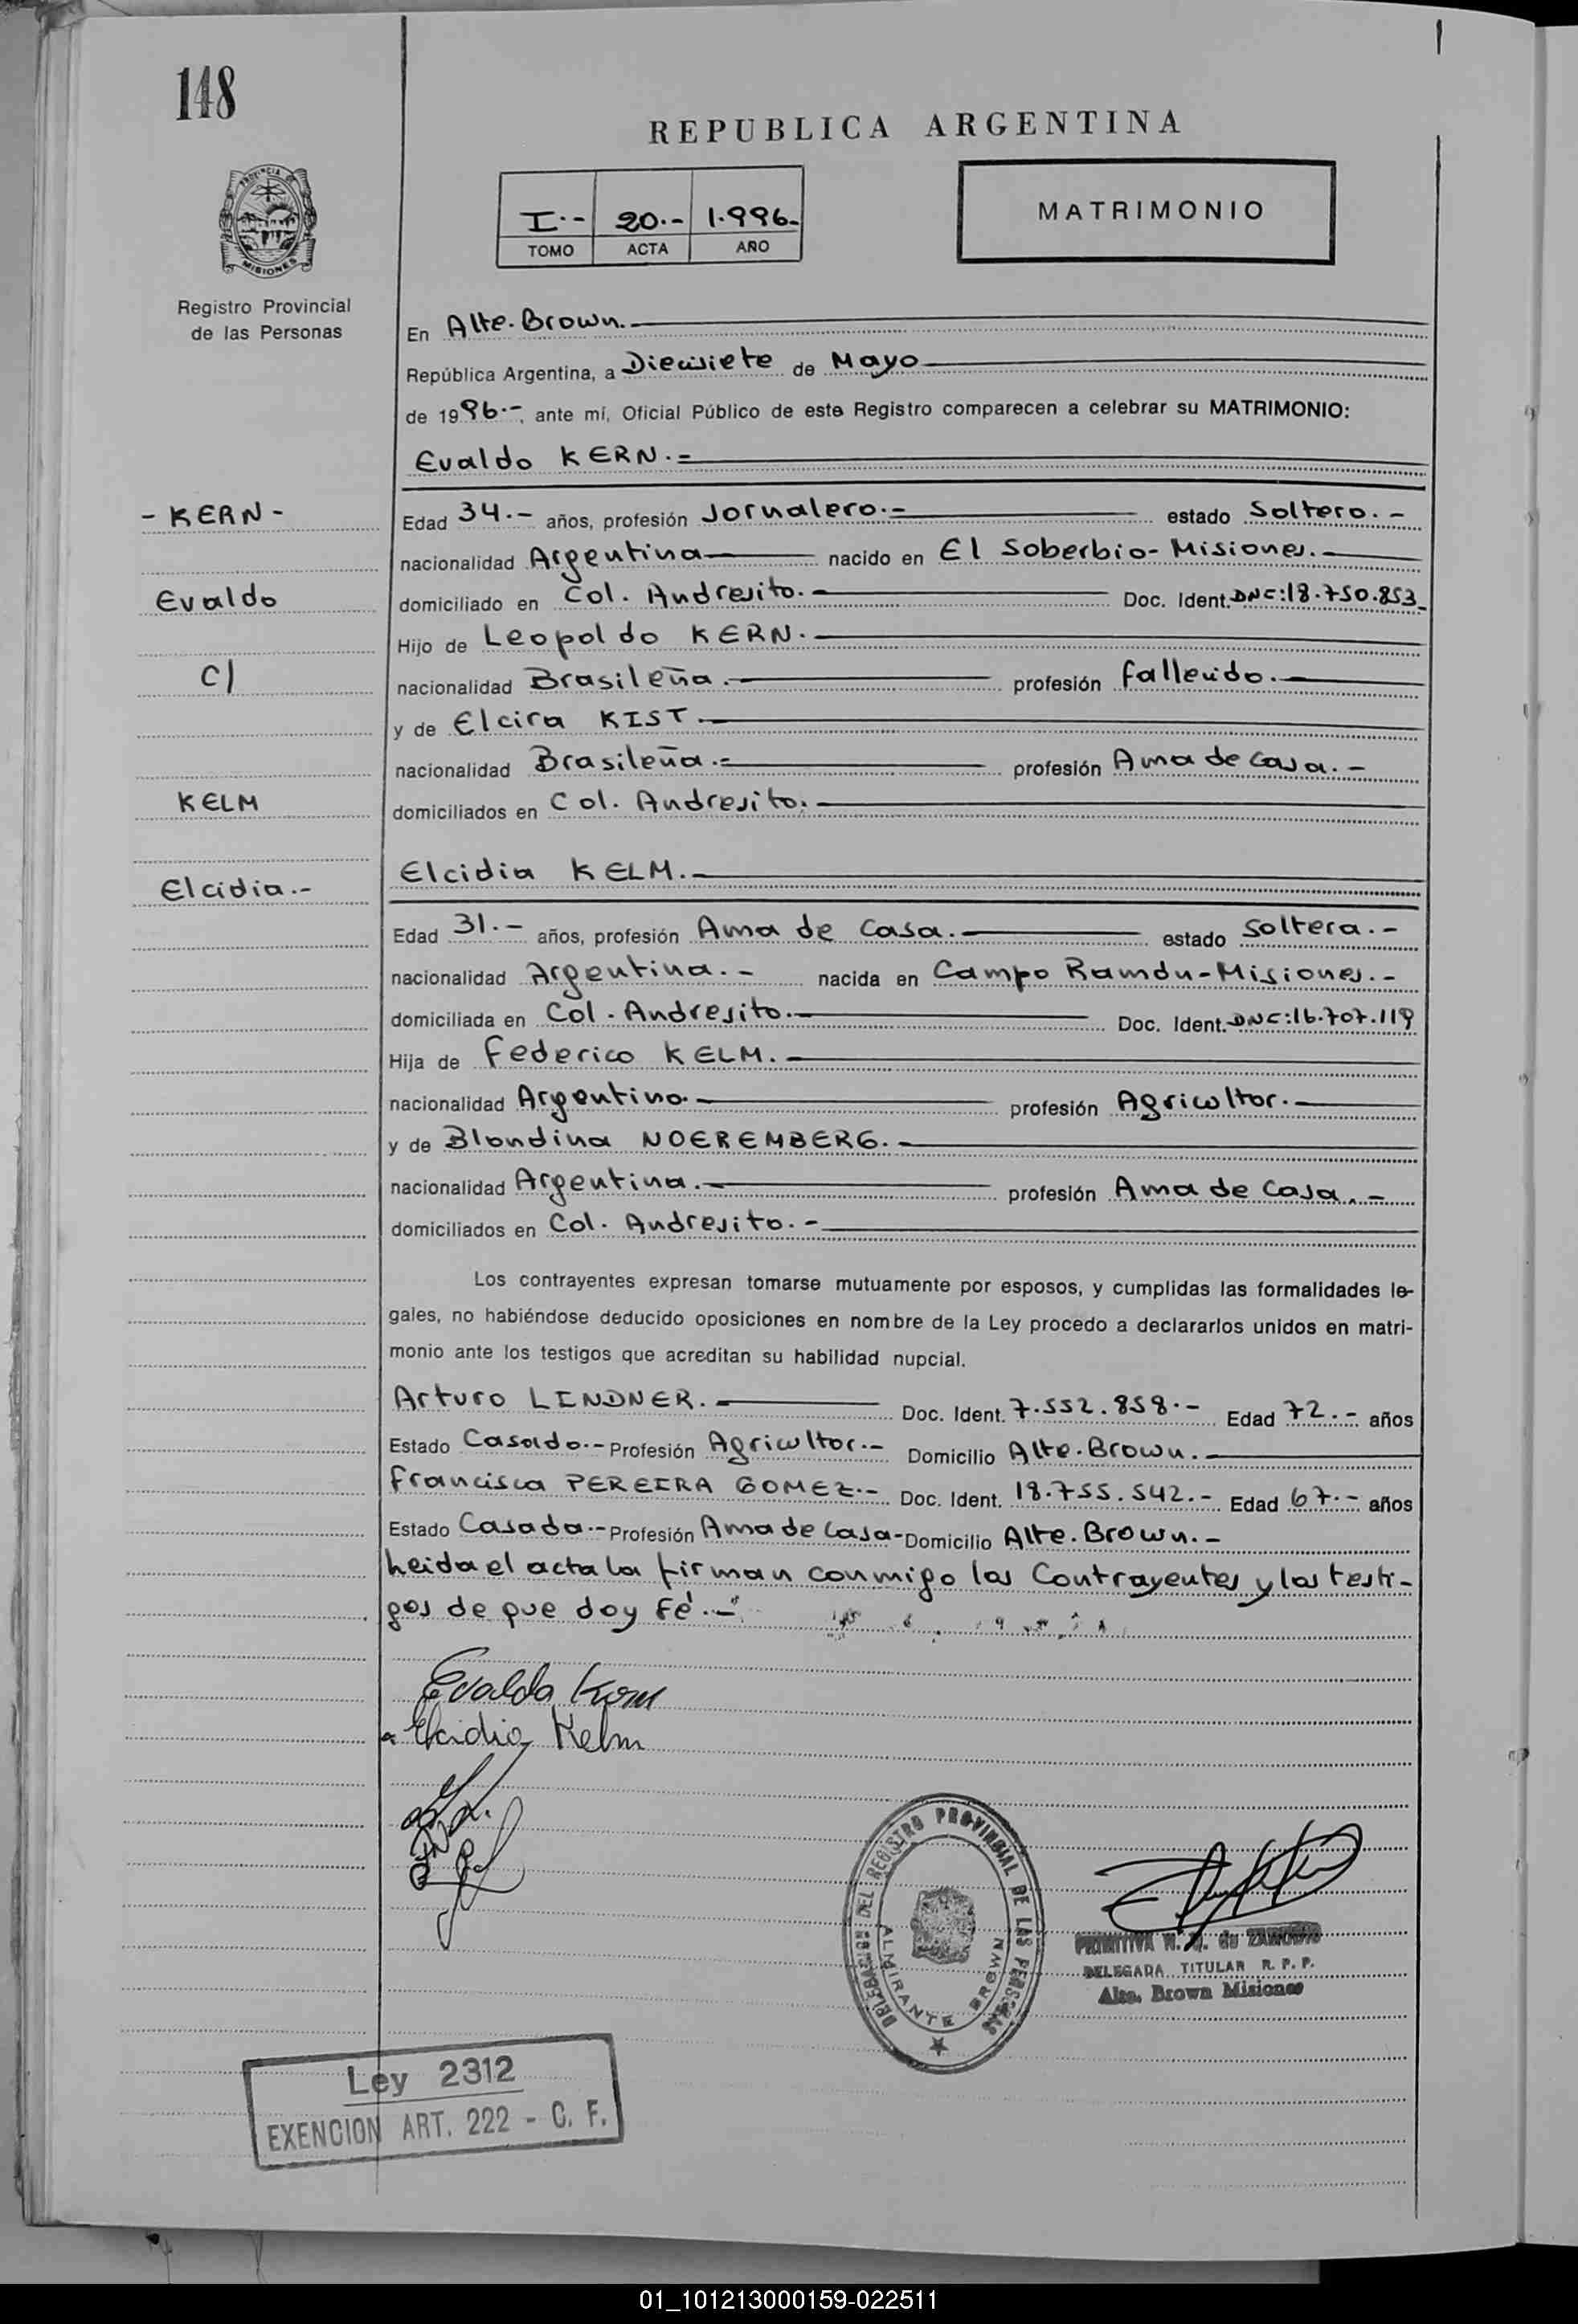 148
REPUBLICA ARGENTINA
I.- 20.- 1.996-
TOMO ACTA AÑO
MATRIMONIO
PROVINCIA DE
MISIONES
Registro Provincial
de las Personas
En Alte. Brown.
República Argentina, a Diecisiete de Mayo
de 1996.-, ante mí, Oficial Público de este Registro comparecen a celebrar su MATRIMONIO:
Evaldo KERN.=
- KERN -
Edad 34.- años, profesión Jornalero.- estado Soltero.-
nacionalidad Argentina nacido en El Soberbio-Misiones.-
Evaldo
domiciliado en Col. Andresito.- Doc. Ident. DNI:18.750.853
Hijo de Leopoldo KERN.
C/
nacionalidad Brasileña.- profesión fallecido.-
y de Elcira KIST.-
nacionalidad Brasileña.= profesión Ama de Casa.-
KELM
domiciliados en Col. Andresito.
Elcidia KELM.-
Elcidia.-
Edad 31.- años, profesión Ama de Casa.- estado Soltera.-
nacionalidad Argentina.- nacida en Campo Ramón-Misiones.-
domiciliada en Col. Andresito.- Doc. Ident. DNI:16.707.119
Hija de Federico KELM.-
nacionalidad Argentino.- profesión Agricultor.-
y de Blondina NOEREMBERG.-
nacionalidad Argentina.- profesión Ama de Casa.-
domiciliados en Col. Andresito.-
Los contrayentes expresan tomarse mutuamente por esposos, y cumplidas las formalidades le-
gales, no habiéndose deducido oposiciones en nombre de la Ley procedo a declararlos unidos en matri-
monio ante los testigos que acreditan su habilidad nupcial.
Arturo LINDNER.- Doc. Ident. 7.552.858.- Edad 72.- años
Estado Casado.- Profesión Agricultor.- Domicilio Alte. Brown.-
Francisca PEREIRA GOMEZ.- Doc. Ident. 18.755.542.- Edad 67.- años
Estado Casada.- Profesión Ama de Casa- Domicilio Alte. Brown.-
Leida el acta la firman conmigo los Contrayentes y los testi-
gos de que doy Fé.-
Evaldo Kern
Elcidia Kelm
DELEGACION DEL REGISTRO PROVINCIAL DE LAS PERSONAS
ALMIRANTE BROWN
PRIMITIVA de
DELEGADA TITULAR R. P. P.
Alte. Brown Misiones
Ley 2312
EXENCION ART. 222 - C. F.
01_101213000159-022511